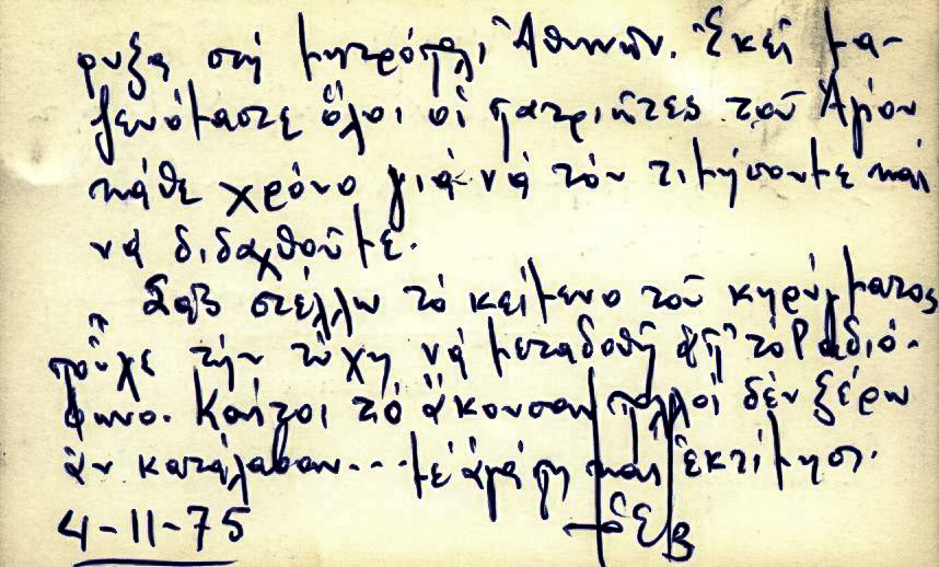 ρυξα στή μητρόπολι Ἀθηνῶν. Ἐκεῖ μα-
ζευόμαστε ὅλοι οἱ πατριῶτες τοῦ Ἁγίου
κάθε χρόνο γιά νά τόν τιμήσουμε καί
νά διδαχθοῦμε.
Σᾶς στέλλω τό κείμενο τοῦ κηρύγματος
πoὖχε τήν τύχη νά μεταδοθῆ ἀπ' τό Ραδιό-
φωνο. Καίτοι τό ἄκουσαν πολλοί δέν ξέρω
ἄν κατάλαβαν... Μέ ἀγάπη καί ἐκτίμησι.
4-11-75